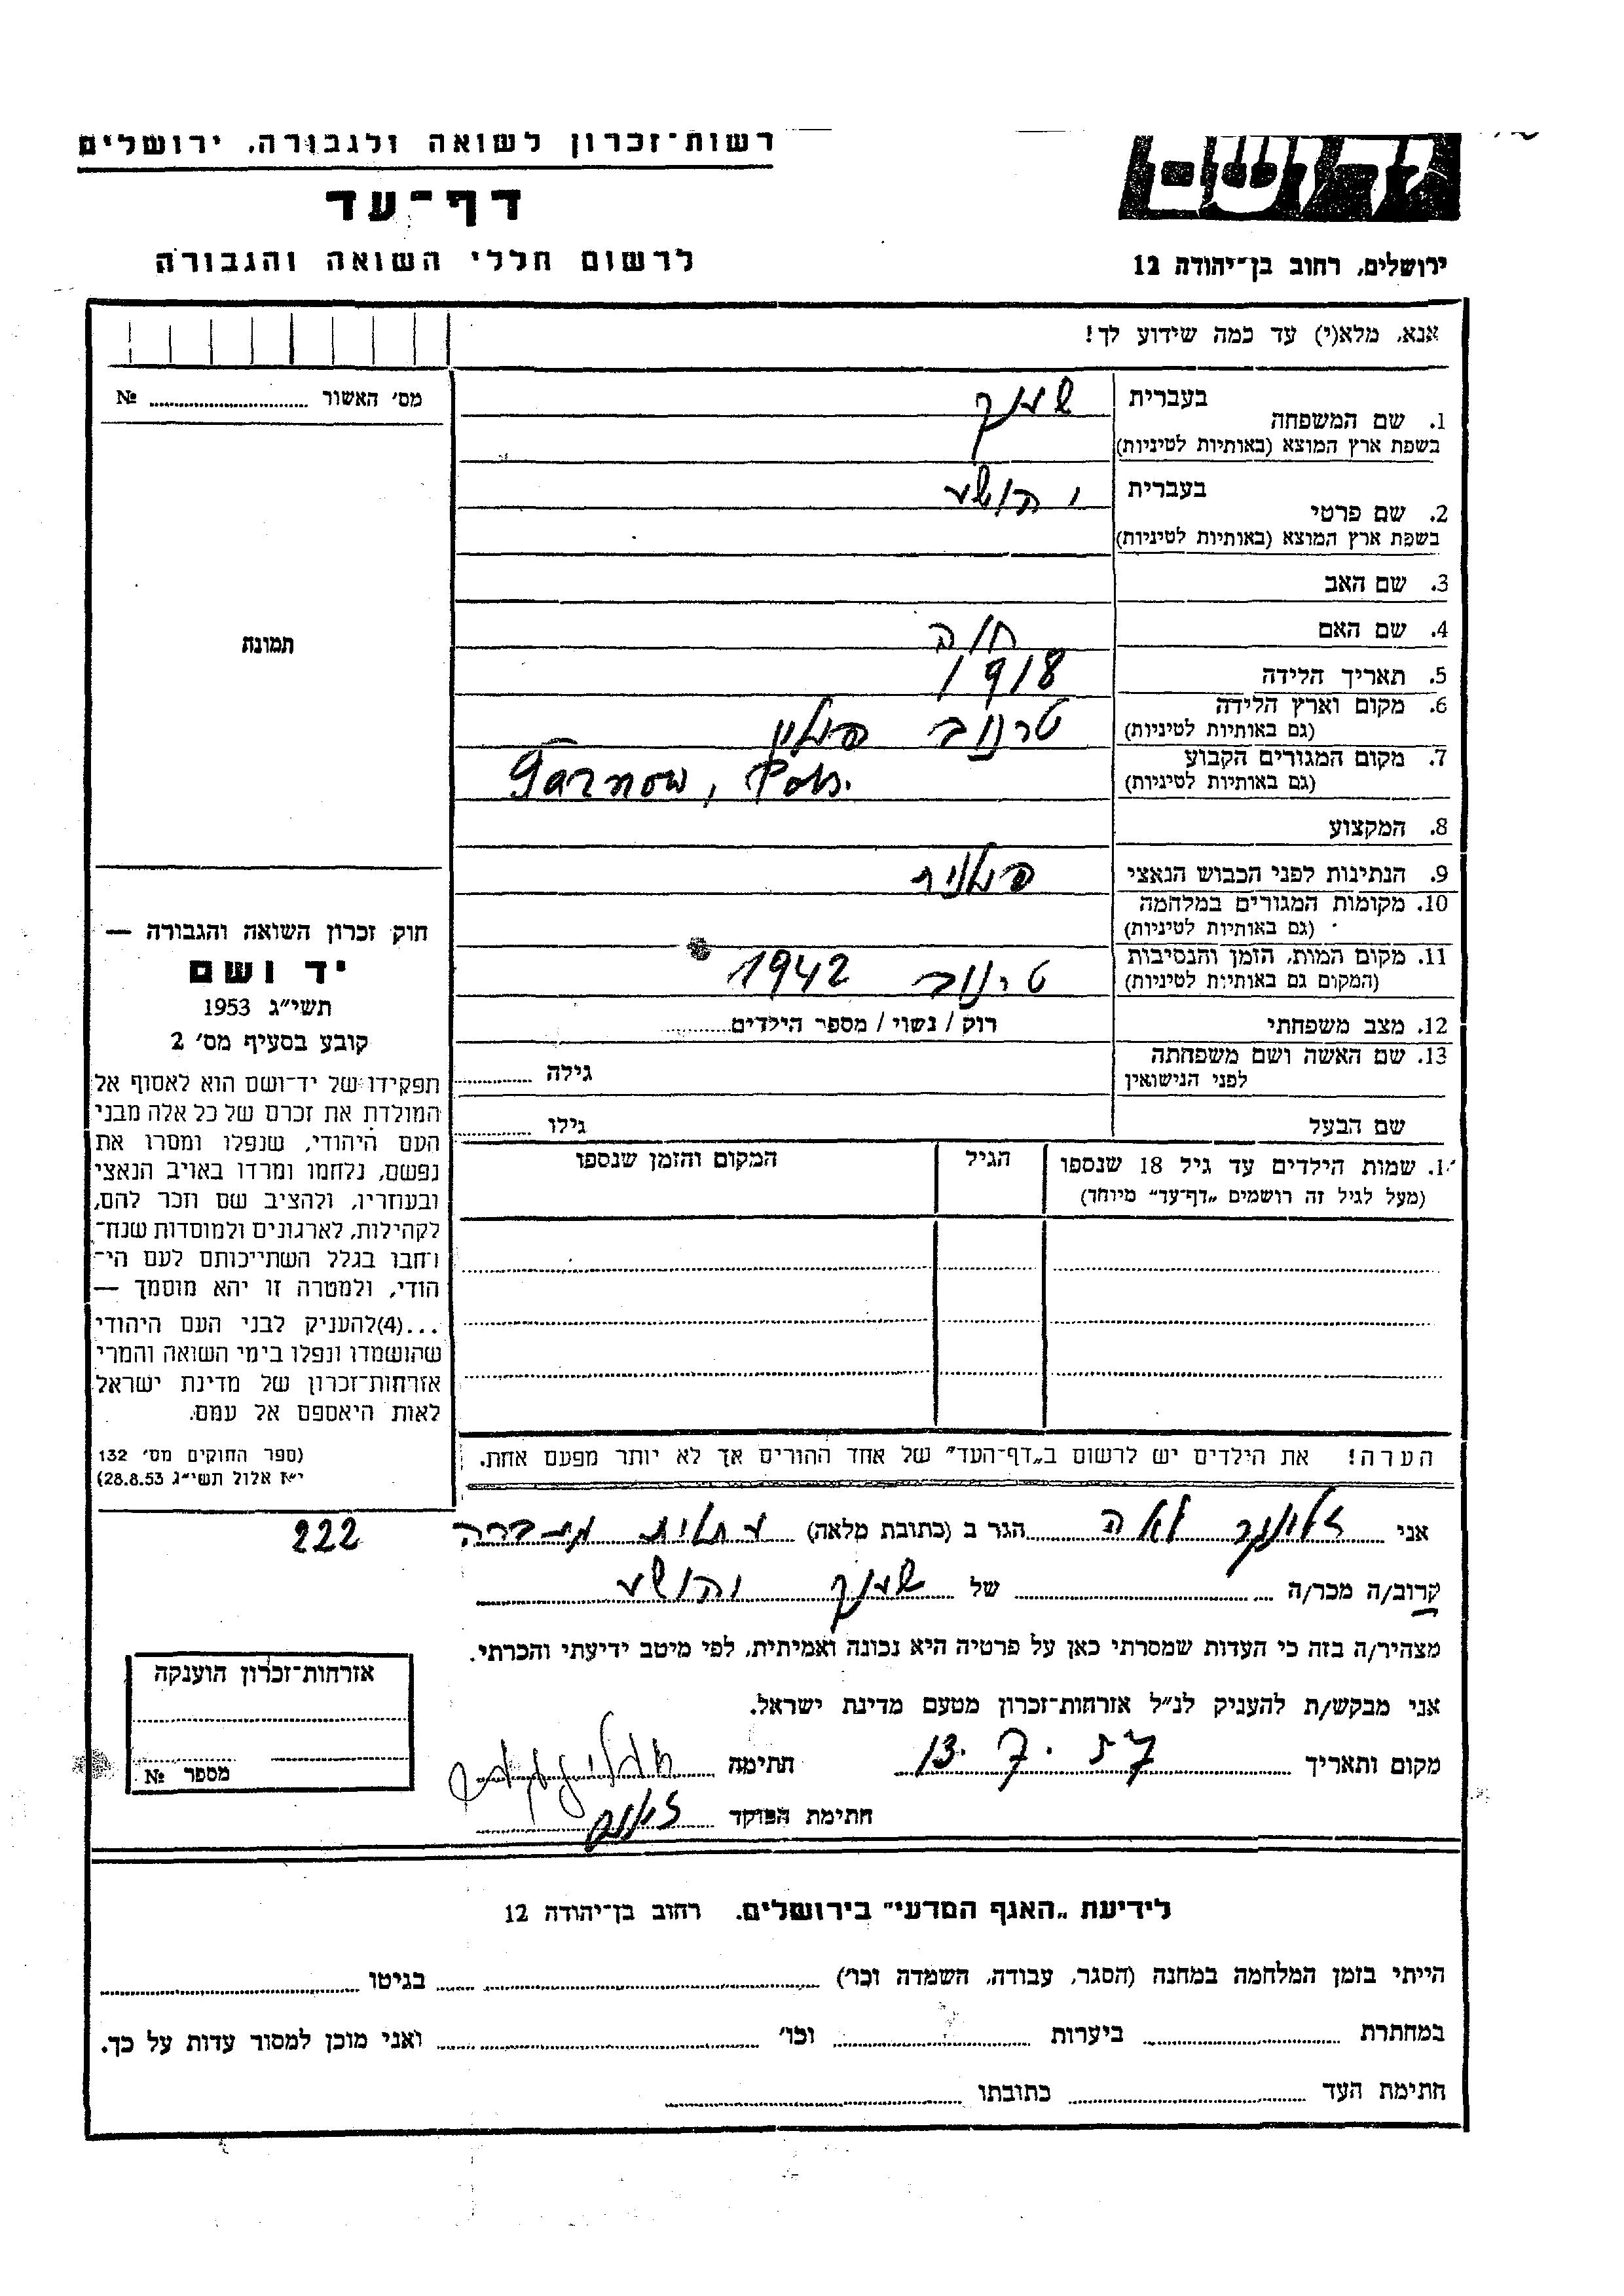 רשות־זכרון לשואה ולגבורה, ירושלים
דף־עד
לרשום חללי השואה והגבורה
ירושלים, רחוב בן־יהודה 12
אנא, מלא(י) עד כמה שידוע לך!
מס׳ האשור № 
תמונת
1. שם המשפחה
בעברית
בשפת ארץ המוצא (באותיות לטיניות)
2. שם פרטי
בעברית יהושע
בשפת ארץ המוצא (באותיות לטיניות)
3. שם האב
4. שם האם חוה
5. תאריך הלידה 1918
6. מקום וארץ הלידה טרנוב פולין
(גם באותיות לטיניות)
7. מקום המגורים הקבוע Tarnow, Pol.
(גם באותיות לטיניות)
8. המקצוע
9. הנתינות לפני הכבוש הנאצי פולנית
10. מקומות המגורים במלחמה
(גם באותיות לטיניות)
11. מקום המות, הזמן והנסיבות טרנוב 1942
(המקום גם באותיות לטיניות)
12. מצב משפחתי רוק / נשוי / מספר הילדים
13. שם האשה ושם משפחתה גילה
לפני הנישואין
שם הבעל גילו
1. שמות הילדים עד גיל 18 שנספו הגיל המקום והזמן שנספו
(מעל לגיל זה רושמים „דף־עד״ מיוחד)
הערה! את הילדים יש לרשום ב„דף־העד״ של אחד ההורים אך לא יותר מפעם אחת.
חוק זכרון השואה והגבורה —
יד ושם
תשי״ג 1953
קובע בסעיף מס׳ 2
תפקידו של יד־ושם הוא לאסוף אל
המולדת את זכרם של כל אלה מבני
העם היהודי, שנפלו ומסרו את
נפשם, נלחמו ומרדו באויב הנאצי
ובעוזריו, ולהציב שם וזכר להם,
לקהילות, לארגונים ולמוסדות שנח־
רחבו בגלל השתייכותם לעם הי־
הודי, ולמטרה זו יהא מוסמך —
...(4)להעניק לבני העם היהודי
שהושמדו ונפלו בימי השואה והמרי
אזרחות־זכרון של מדינת ישראל
לאות היאספם אל עמם.
(ספר החוקים מס׳ 132
י״ז אלול תשי״ג 28.8.53)
אני לאה הגר ב (כתובת מלאה) עתלית 222
קרוב/ה מכר/ה של יהושע
מצהיר/ה בזה כי העדות שמסרתי כאן על פרטיה היא נכונה ואמיתית, לפי מיטב ידיעתי והכרתי.
אני מבקש/ת להעניק לנ״ל אזרחות־זכרון מטעם מדינת ישראל.
מקום ותאריך 13.7.57 חתימה
חתימת הפוקד
אזרחות־זכרון הוענקה
מספר №
לידיעת „האגף המדעי״ בירושלים. רחוב בן־יהודה 12
הייתי בזמן המלחמה במחנה (הסגר, עבודה, השמדה וכו׳) בגיטו
במחתרת ביערות וכו׳ ואני מוכן למסור עדות על כך.
חתימת העד כתובתו